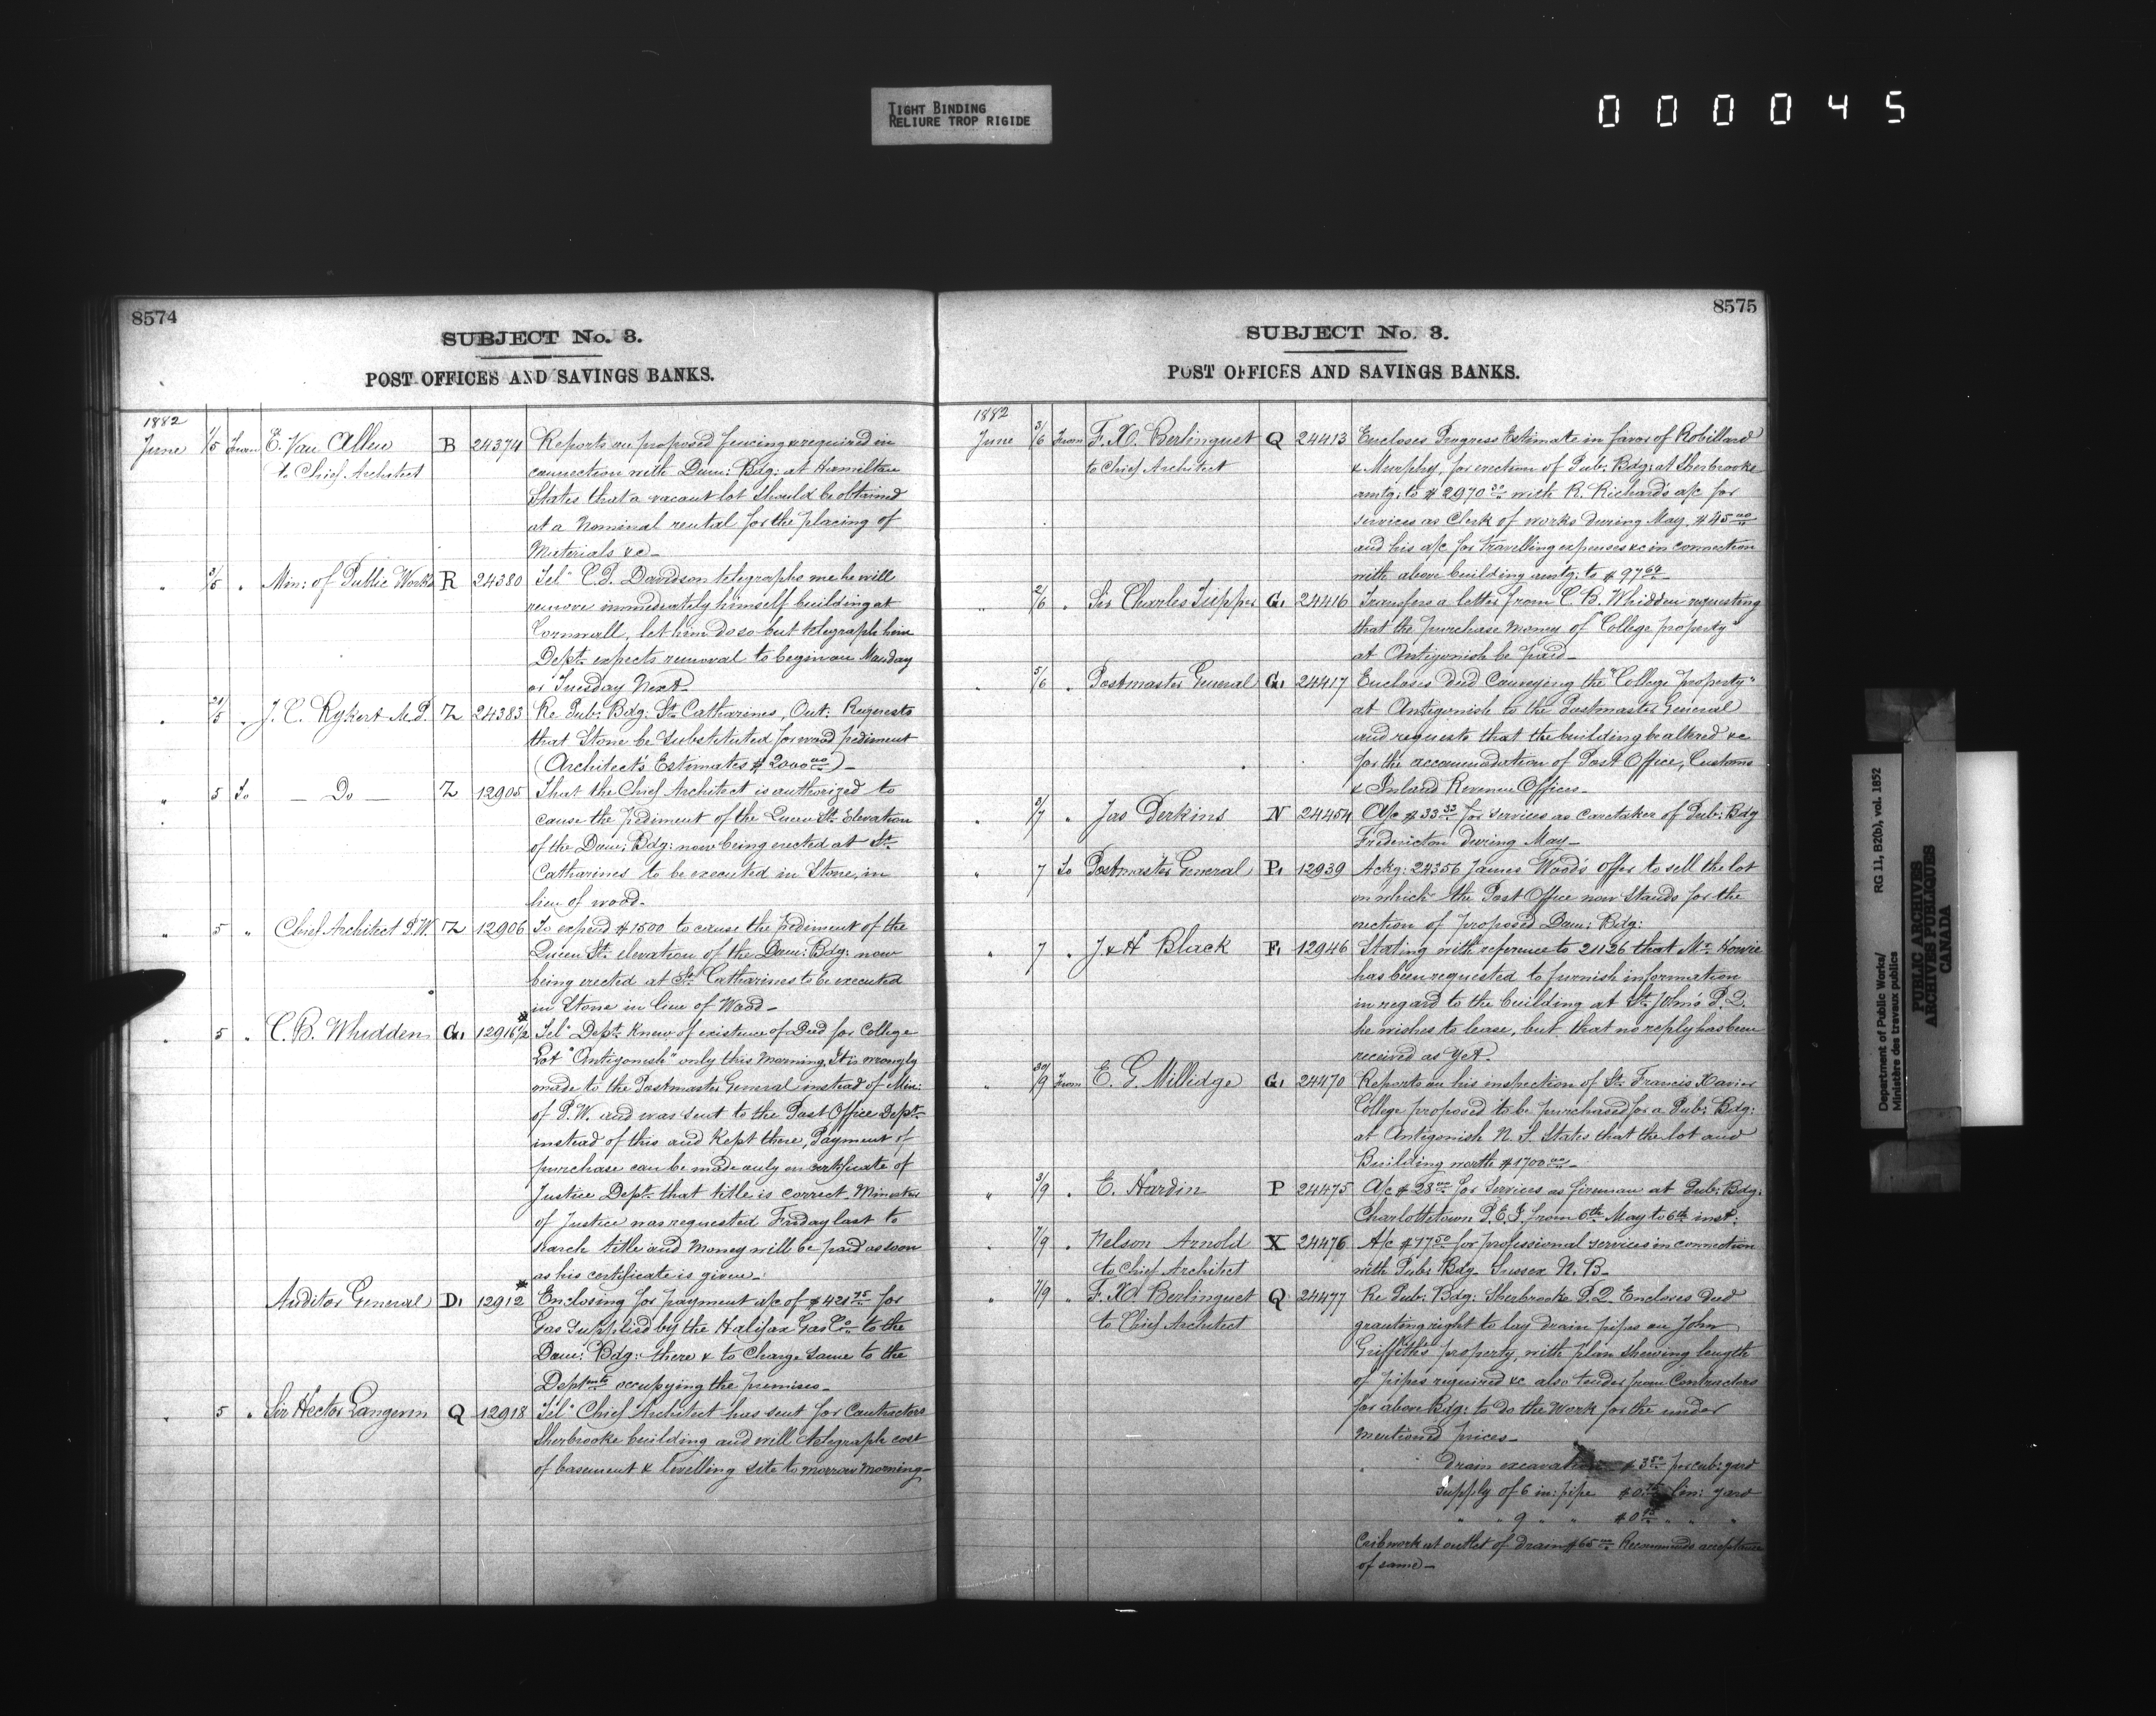 TIGHT BINDING
RELIURE TROP RIGIDE
000045
8574
SUBJECT No. 3.
POST OFFICES AND SAVINGS BANKS.
1882
June 1/5 From E. Van Allen B 24374 Reports on proposed fencing required in
to Chief Architect connection with Dom: Bdg: at Hamilton
States that a vacant lot should be obtained
at a Nominal rental for the placing of
Materials &c—
" 3/5 " Min: of Public Works R 24380 Tel" C. P. Davidson telegraphs me he will
remove immediately himself building at
Cornwall, let him do so but telegraph him
Dept. expects removal to begin on Monday
or Tuesday Next—
" 31/5 " J. C. Rykert M.P. Z 24383 Re Pub: Bdg: St. Catharines, Ont: Requests
that Stone be substituted for wood pediment
(Architect's Estimates $2000 00)—
" 5 To — Do — Z 12905 That the Chief Architect is authorized to
cause the Pediment of the Queen St. Elevation
of the Dom: Bdg: now being erected at St.
Catharines to be executed in Stone, in
lieu of wood—
" 5 " Chief Architect P.W. Z 12906 To expend $1500 to cause the pediment of the
Queen St. elevation of the Dom: Bdg: now
being erected at St. Catharines to be executed
in Stone in lieu of Wood—
" 5 " C. B. Whidden G1 12916½ Tel" Dept. Knew of existence of Deed for College
Lot "Antigonish" only this morning. It is wrongly
made to the Postmaster General instead of Min:
of P.W. and was sent to the Post Office Dept.
instead of this and Kept there, Payment of
purchase can be made only on certificate of
Justice Dept. that title is correct. Minister
of Justice was requested Friday last to
search title and money will be paid as soon
as his certificate is given—
Auditor General D1 12912* Enclosing for payment a/c of $421 75 for
Gas Supplied by the Halifax Gas Co. to the
Dom: Bdg: there & to Charge same to the
Deptmts occupying the premises—
" 5 " Sir Hector Langevin Q 12918 Tel" Chief Architect has sent for Contractors
Sherbrooke building and will telegraph cost
of basement & levelling site to morrow morning—
8575
SUBJECT No. 3.
POST OFFICES AND SAVINGS BANKS.
1882
June 3/6 From F. X. Berlinguet Q 24413 Encloses Progress Estimate in favor of Robillard
to Chief Architect & Murphy, for erection of Pub: Bdg: at Sherbrooke
amtg: to $2970 with R. Richard's a/c for
services as Clerk of works during May, $45 00
and his a/c for travelling expenses &c in connection
with above building amtg: to $97 69—
" 2/6 " Sir Charles Tupper G1 24416 Transfers a letter from C. B. Whidden requesting
that the purchase money of "College property"
at Antigonish be paid—
" 5/6 " Postmaster General G1 24417 Encloses deed Conveying the "College property"
at Antigonish to the Postmaster General
and requests that the building be altered &c
for the accommodation of Post Office, Customs
& Inland Revenue Offices—
" 5/7 " Jas Perkins N 24454 A/c $33 33 for services as caretaker of Pub: Bdg
Fredericton during May—
" 7 To Postmaster General P1 12939 Ackg: 24356 James Wood's offer to sell the lot
on which the Post Office now Stands for the
erection of proposed Dom: Bdg:
" 7 " J & H Black F1 12946 Stating with reference to 21126 that Mr. Howie
has been requested to furnish information
in regard to the building at St. John's P.Q.
he wishes to lease, but that no reply has been
received as Yet—
" 30/9 From E. G. Millidge G1 24470 Reports on his inspection of St. Francis Xavier
College proposed to be purchased for a Pub: Bdg:
at Antigonish N.S. States that the lot and
Building worth $1700 00—
" 3/9 " E. Hardin P 24475 A/c $28 00 for Services as fireman at Pub: Bdg:
Charlottetown P.E.I. from 6th May to 6th inst:
" 7/9 " Nelson Arnold X 24476 A/c $17 50 for professional services in connection
to Chief Architect with Pub: Bdg. Sussex N.B—
" 7/9 " F. X. Berlinguet Q 24477 Re Pub: Bdg: Sherbrooke P.Q. Encloses deed
to Chief Architect granting right to lay drain pipes on John
Griffith's property, with plan shewing length
of pipes required &c also tender from Contractors
for above Bdg: to do the Work for the under
mentioned prices—
Drain excavation $3 50 per cub: yard
Supply of 6 in: pipe $0 75 lin: yard
" " 9 " " $0 " " "
Cribwork at outlet of drain $65 00 Recommends acceptance
of same—
Department of Public Works/
Ministère des travaux publics
RG 11, B2(b), vol. 1852
PUBLIC ARCHIVES
ARCHIVES PUBLIQUES
CANADA